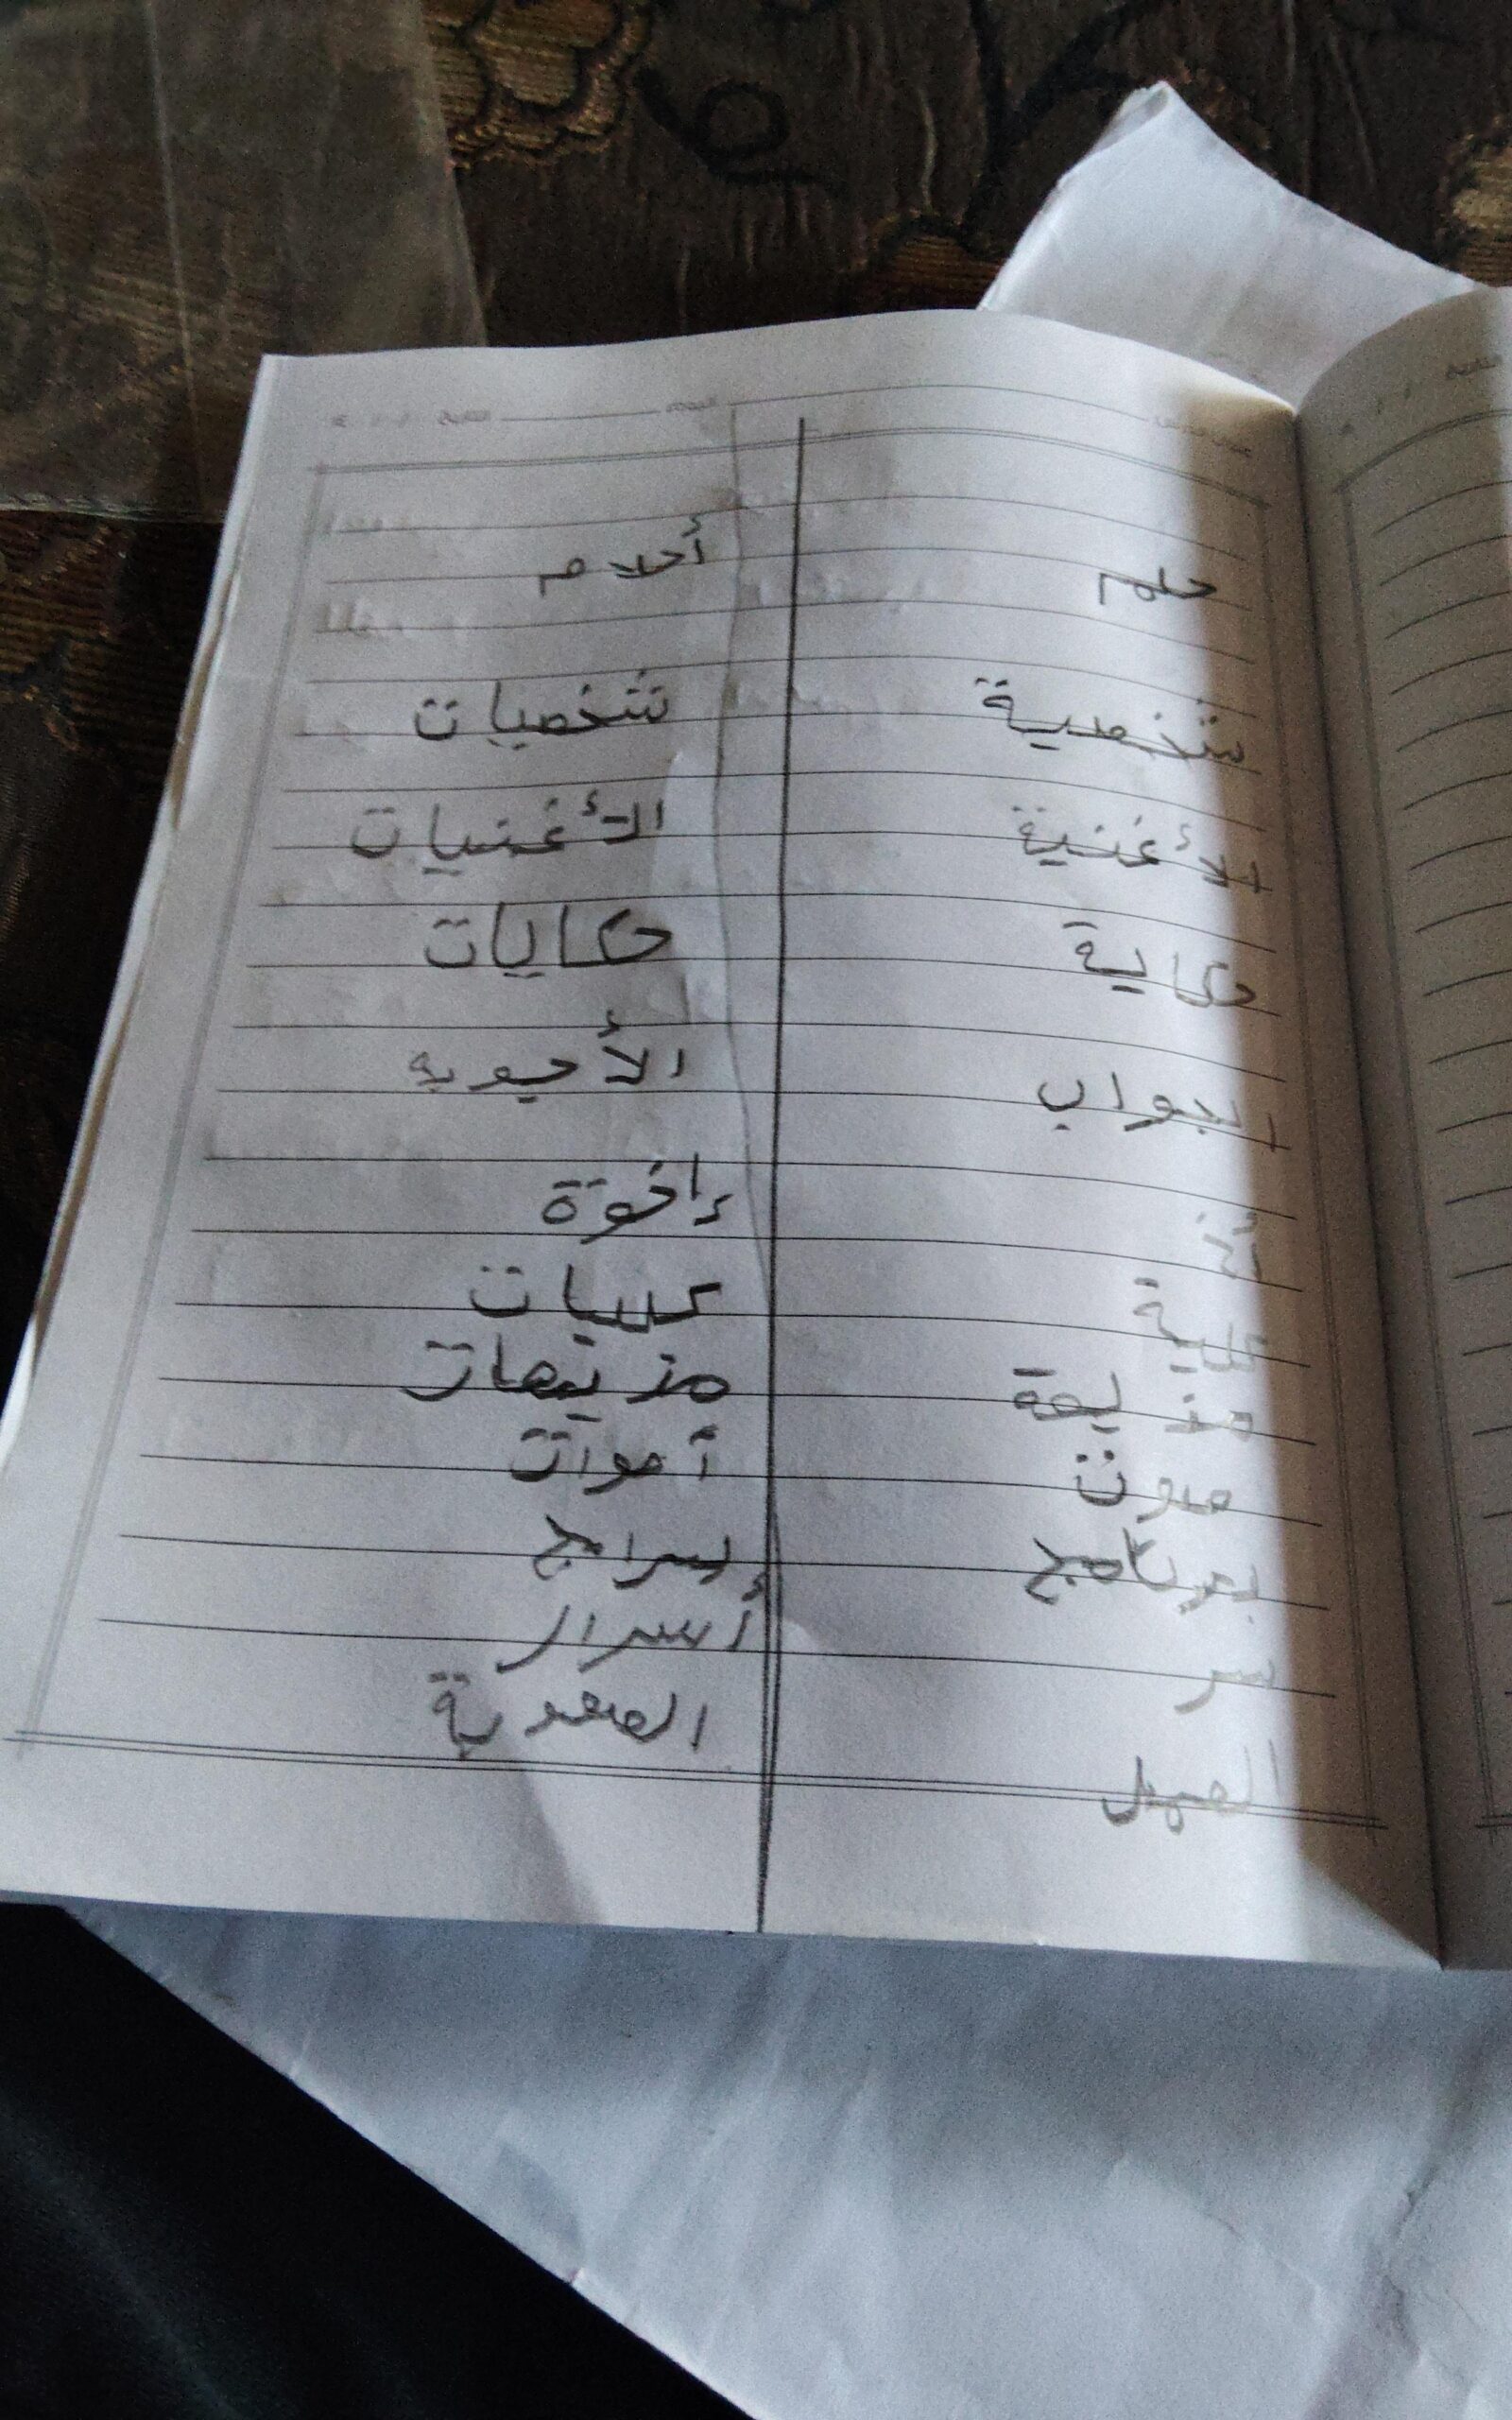 حلم أحلام
شخصية شخصيات
الأغنية الأغنيات
حكاية حكايات
الجواب الأجوبه
أخ إخوة
كلية كليات
مذيعة مذيعات
صوت أصوات
برنامج برامج
سر أسرار
السهل الصعوبة